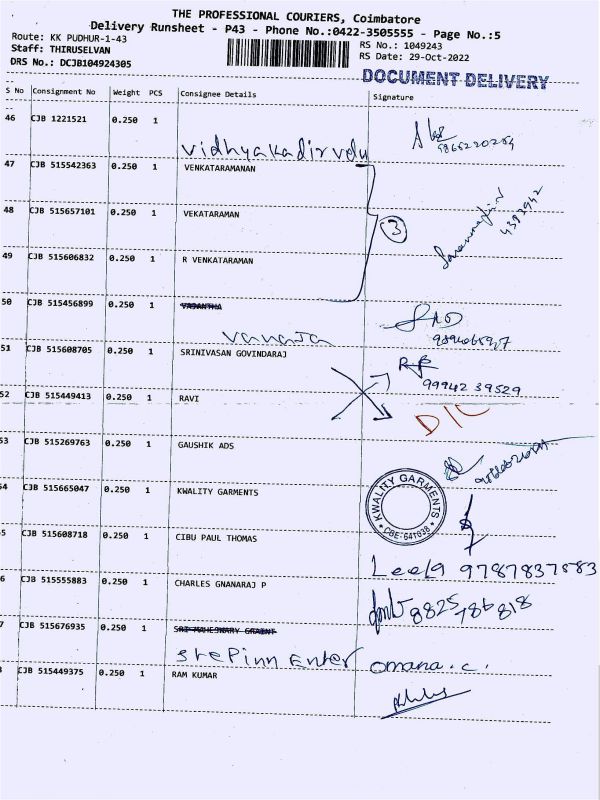 THE PROFESSIONAL COURIERS, Coimbatore
Delivery Runsheet - P43 - Phone No.:0422-3505555 - Page No.:5
Route: KK PUDHUR-1-43 RS No.: 1049243
Staff: THIRUSELVAN RS Date: 29-Oct-2022
DRS No.: DCJB104924305 DOCUMENT DELIVERY
S No Consignment No Weight PCS Consignee Details Signature
46 CJB 1221521 0.250 1
vidhyakadirvelu
47 CJB 515542363 0.250 1 VENKATARAMANAN
48 CJB 515657101 0.250 1 VEKATARAMAN
3
49 CJB 515606832 0.250 1 R VENKATARAMAN
50 CJB 515456899 0.250 1 VASANTHA
vanaja
51 CJB 515608705 0.250 1 SRINIVASAN GOVINDARAJ
99942 39529
52 CJB 515449413 0.250 1 RAVI D/C
53 CJB 515269763 0.250 1 GAUSHIK ADS
54 CJB 515665047 0.250 1 KWALITY GARMENTS
KWALITY GARMENTS
CBE:641038
5 CJB 515608718 0.250 1 CIBU PAUL THOMAS
Leela 9787837883
6 CJB 515555883 0.250 1 CHARLES GNANARAJ P
8825 786 818
7 CJB 515676935 0.250 1 SRI MAHESWARY GRAINT
stepinn Enter omana.c.
CJB 515449375 0.250 1 RAM KUMAR